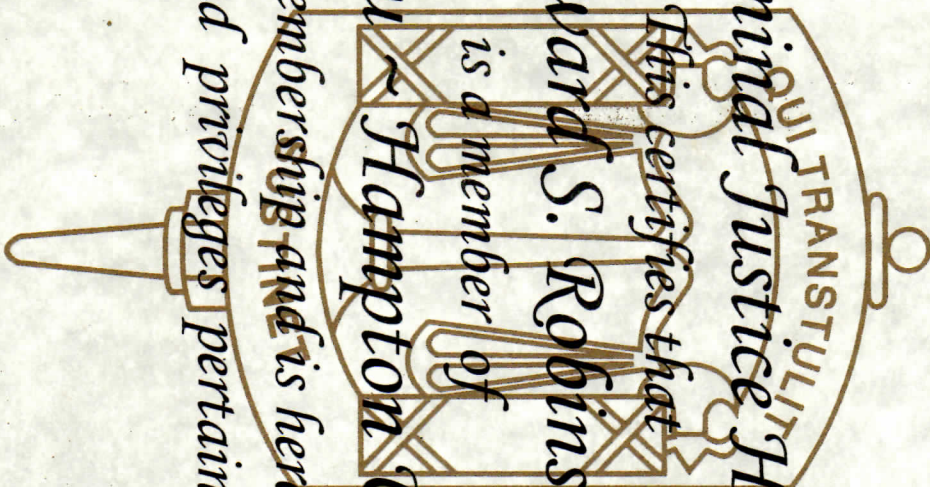 minal Justice H
This certifies that
ward S. Robins
is a member of
u ~ Hampton
embership and is her
d privileges pertain
QUI TRANSTULIT
SUSTINET